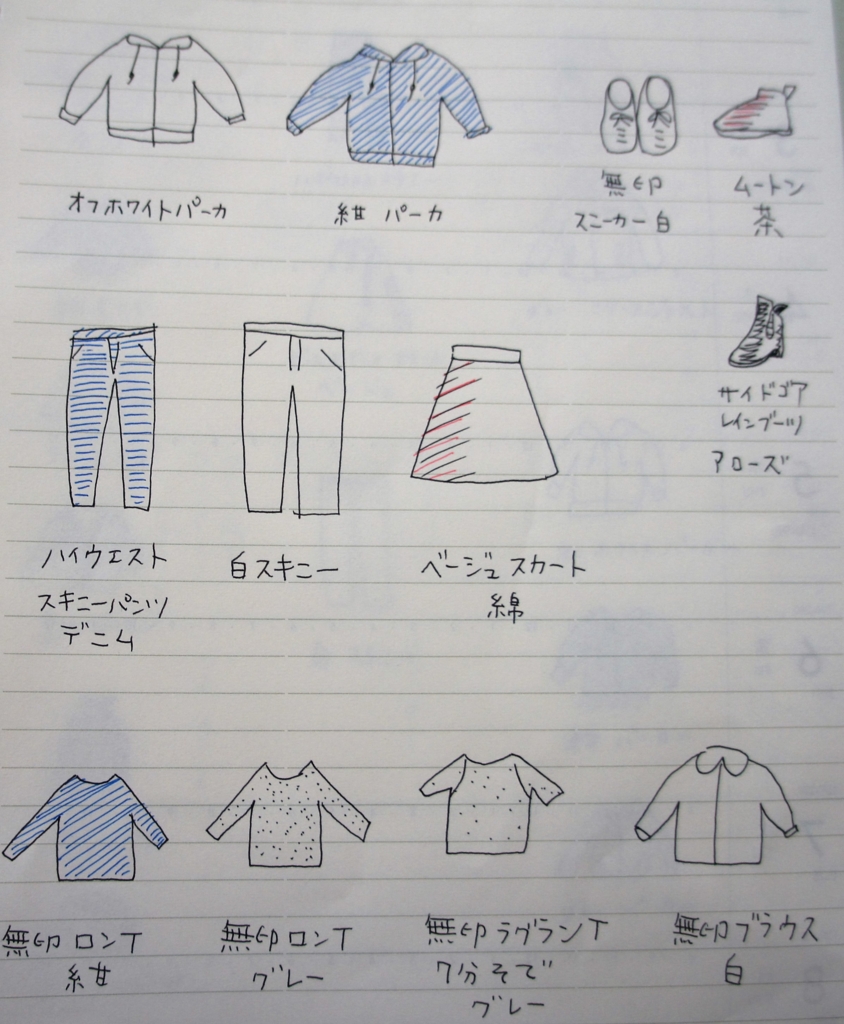 オフホワイトパーカ
紺 パーカ
無印
スニーカー 白
ムートン
茶
サイドゴア
レインブーツ
アローズ
ハイウエスト
スキニーパンツ
デニム
白スキニー
ベージュスカート
綿
無印 ロンT
紺
無印 ロンT
グレー
無印 ラグランT
7分そで
グレー
無印ブラウス
白